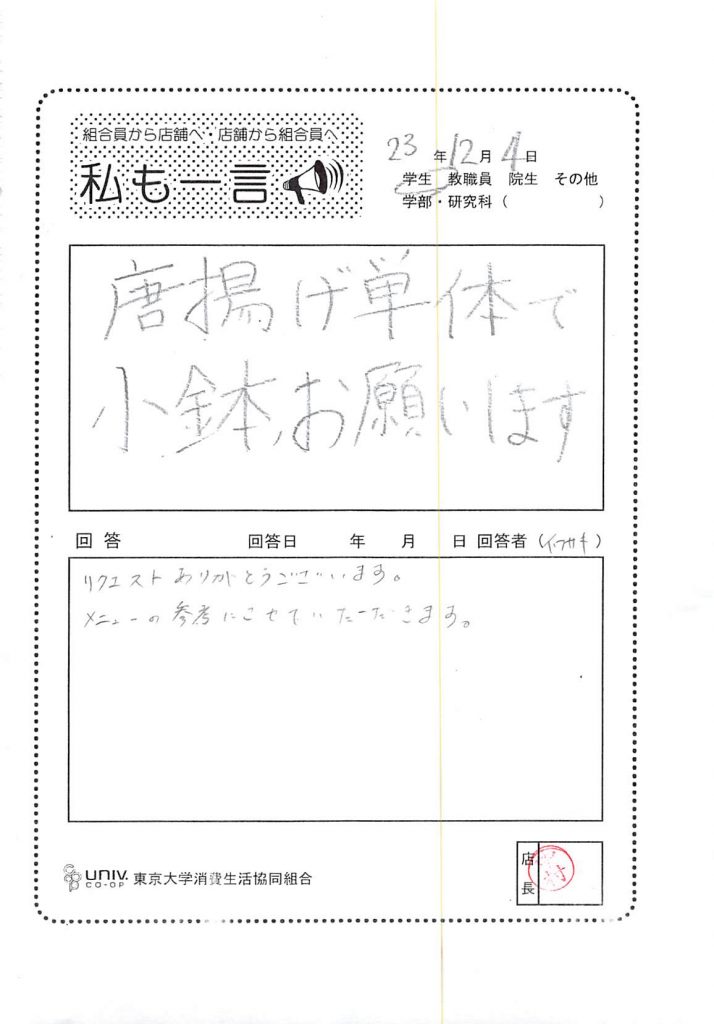 組合員から店舗へ・店舗から組合員へ
私も一言
23年12月4日
学生 教職員 院生 その他
学部・研究科 ( )
唐揚げ単体で
小鉢お願いします
回答 回答日 年 月 日 回答者 (イワサキ)
リクエストありがとうございます。
メニューの参考にさせていただきます。
UNIV. CO-OP 東京大学消費生活協同組合
店長